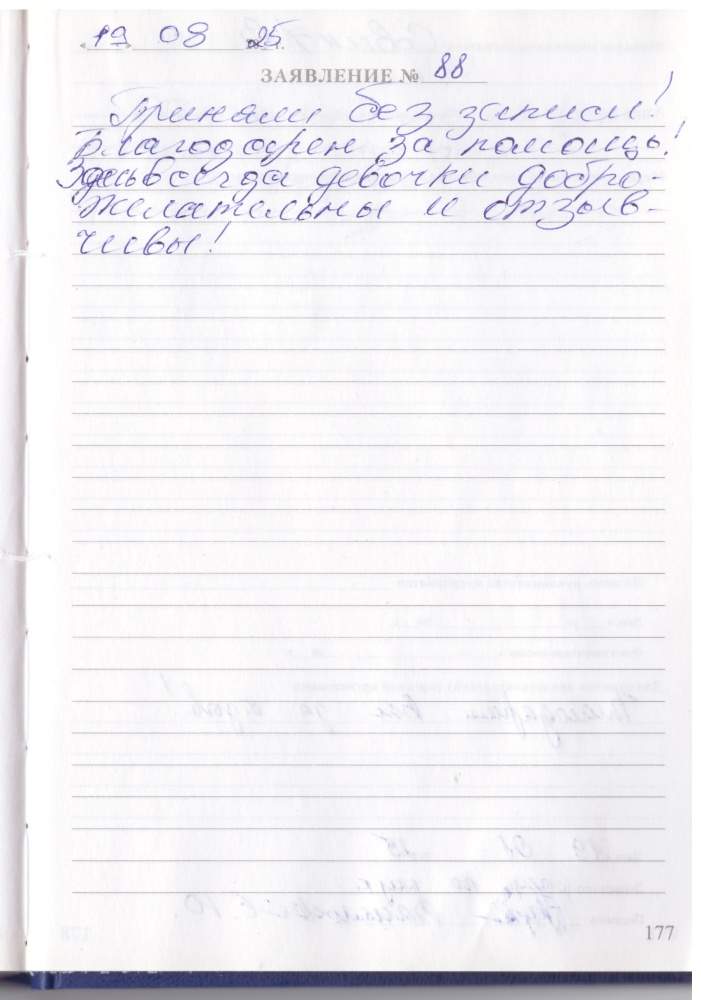 « 19 » 08 2025г.
ЗАЯВЛЕНИЕ № 88
Приняли без записи!
Благодарен за помощь!
Здесь всегда девочки добро-
желательны и отзыв-
чивы!
177